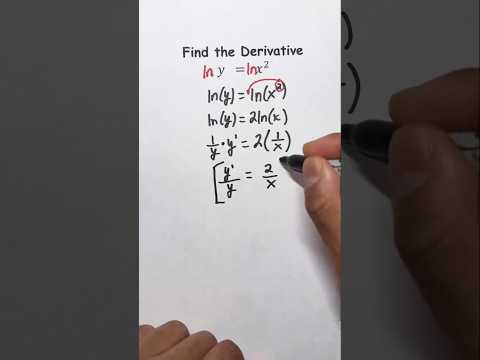 Find the Derivative
ln y = ln x²
ln(y) = ln(x²)
ln(y) = 2ln(x)
1/y · y' = 2(1/x)
[y'/y = 2/x